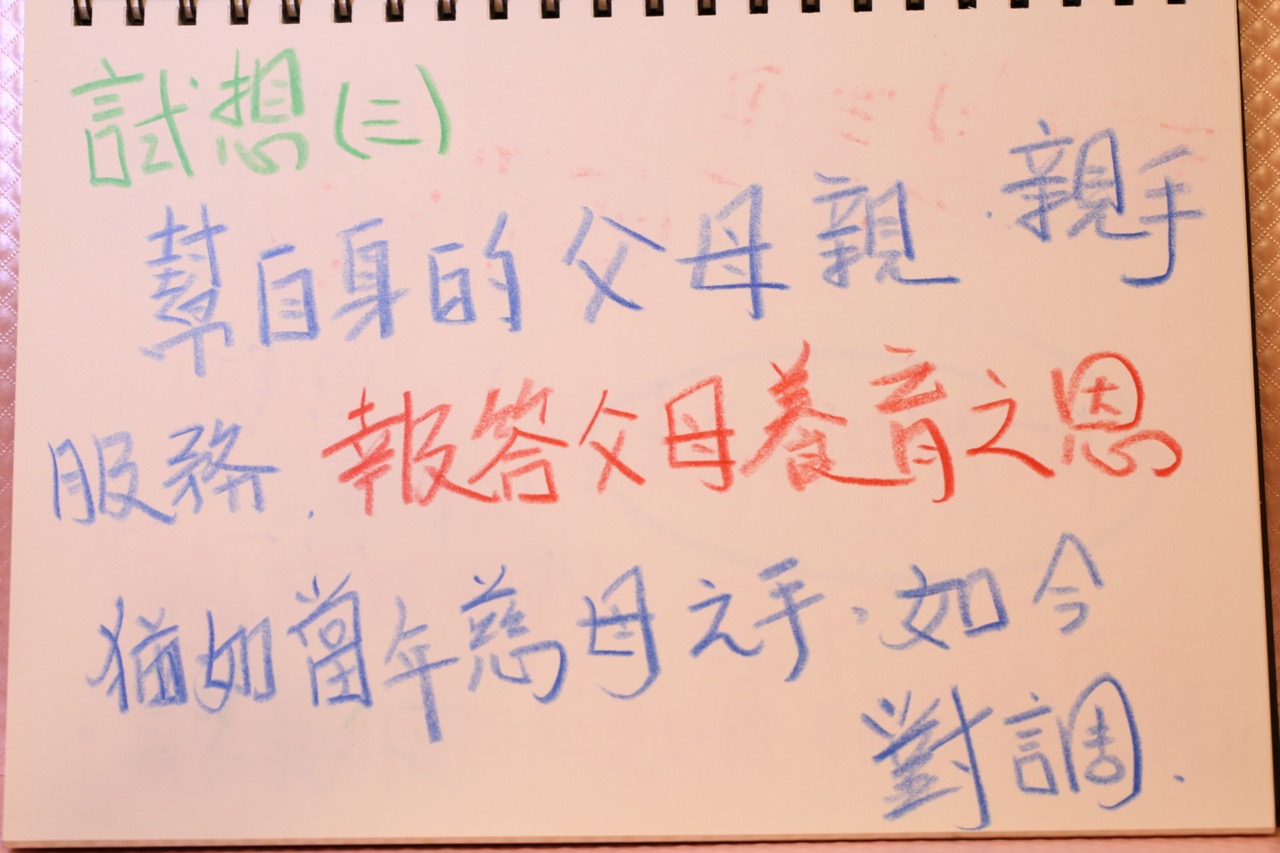 試想(三)
幫自身的父母親.親手
服務.報答父母養育之恩
猶如當年慈母之手.如今
對調.